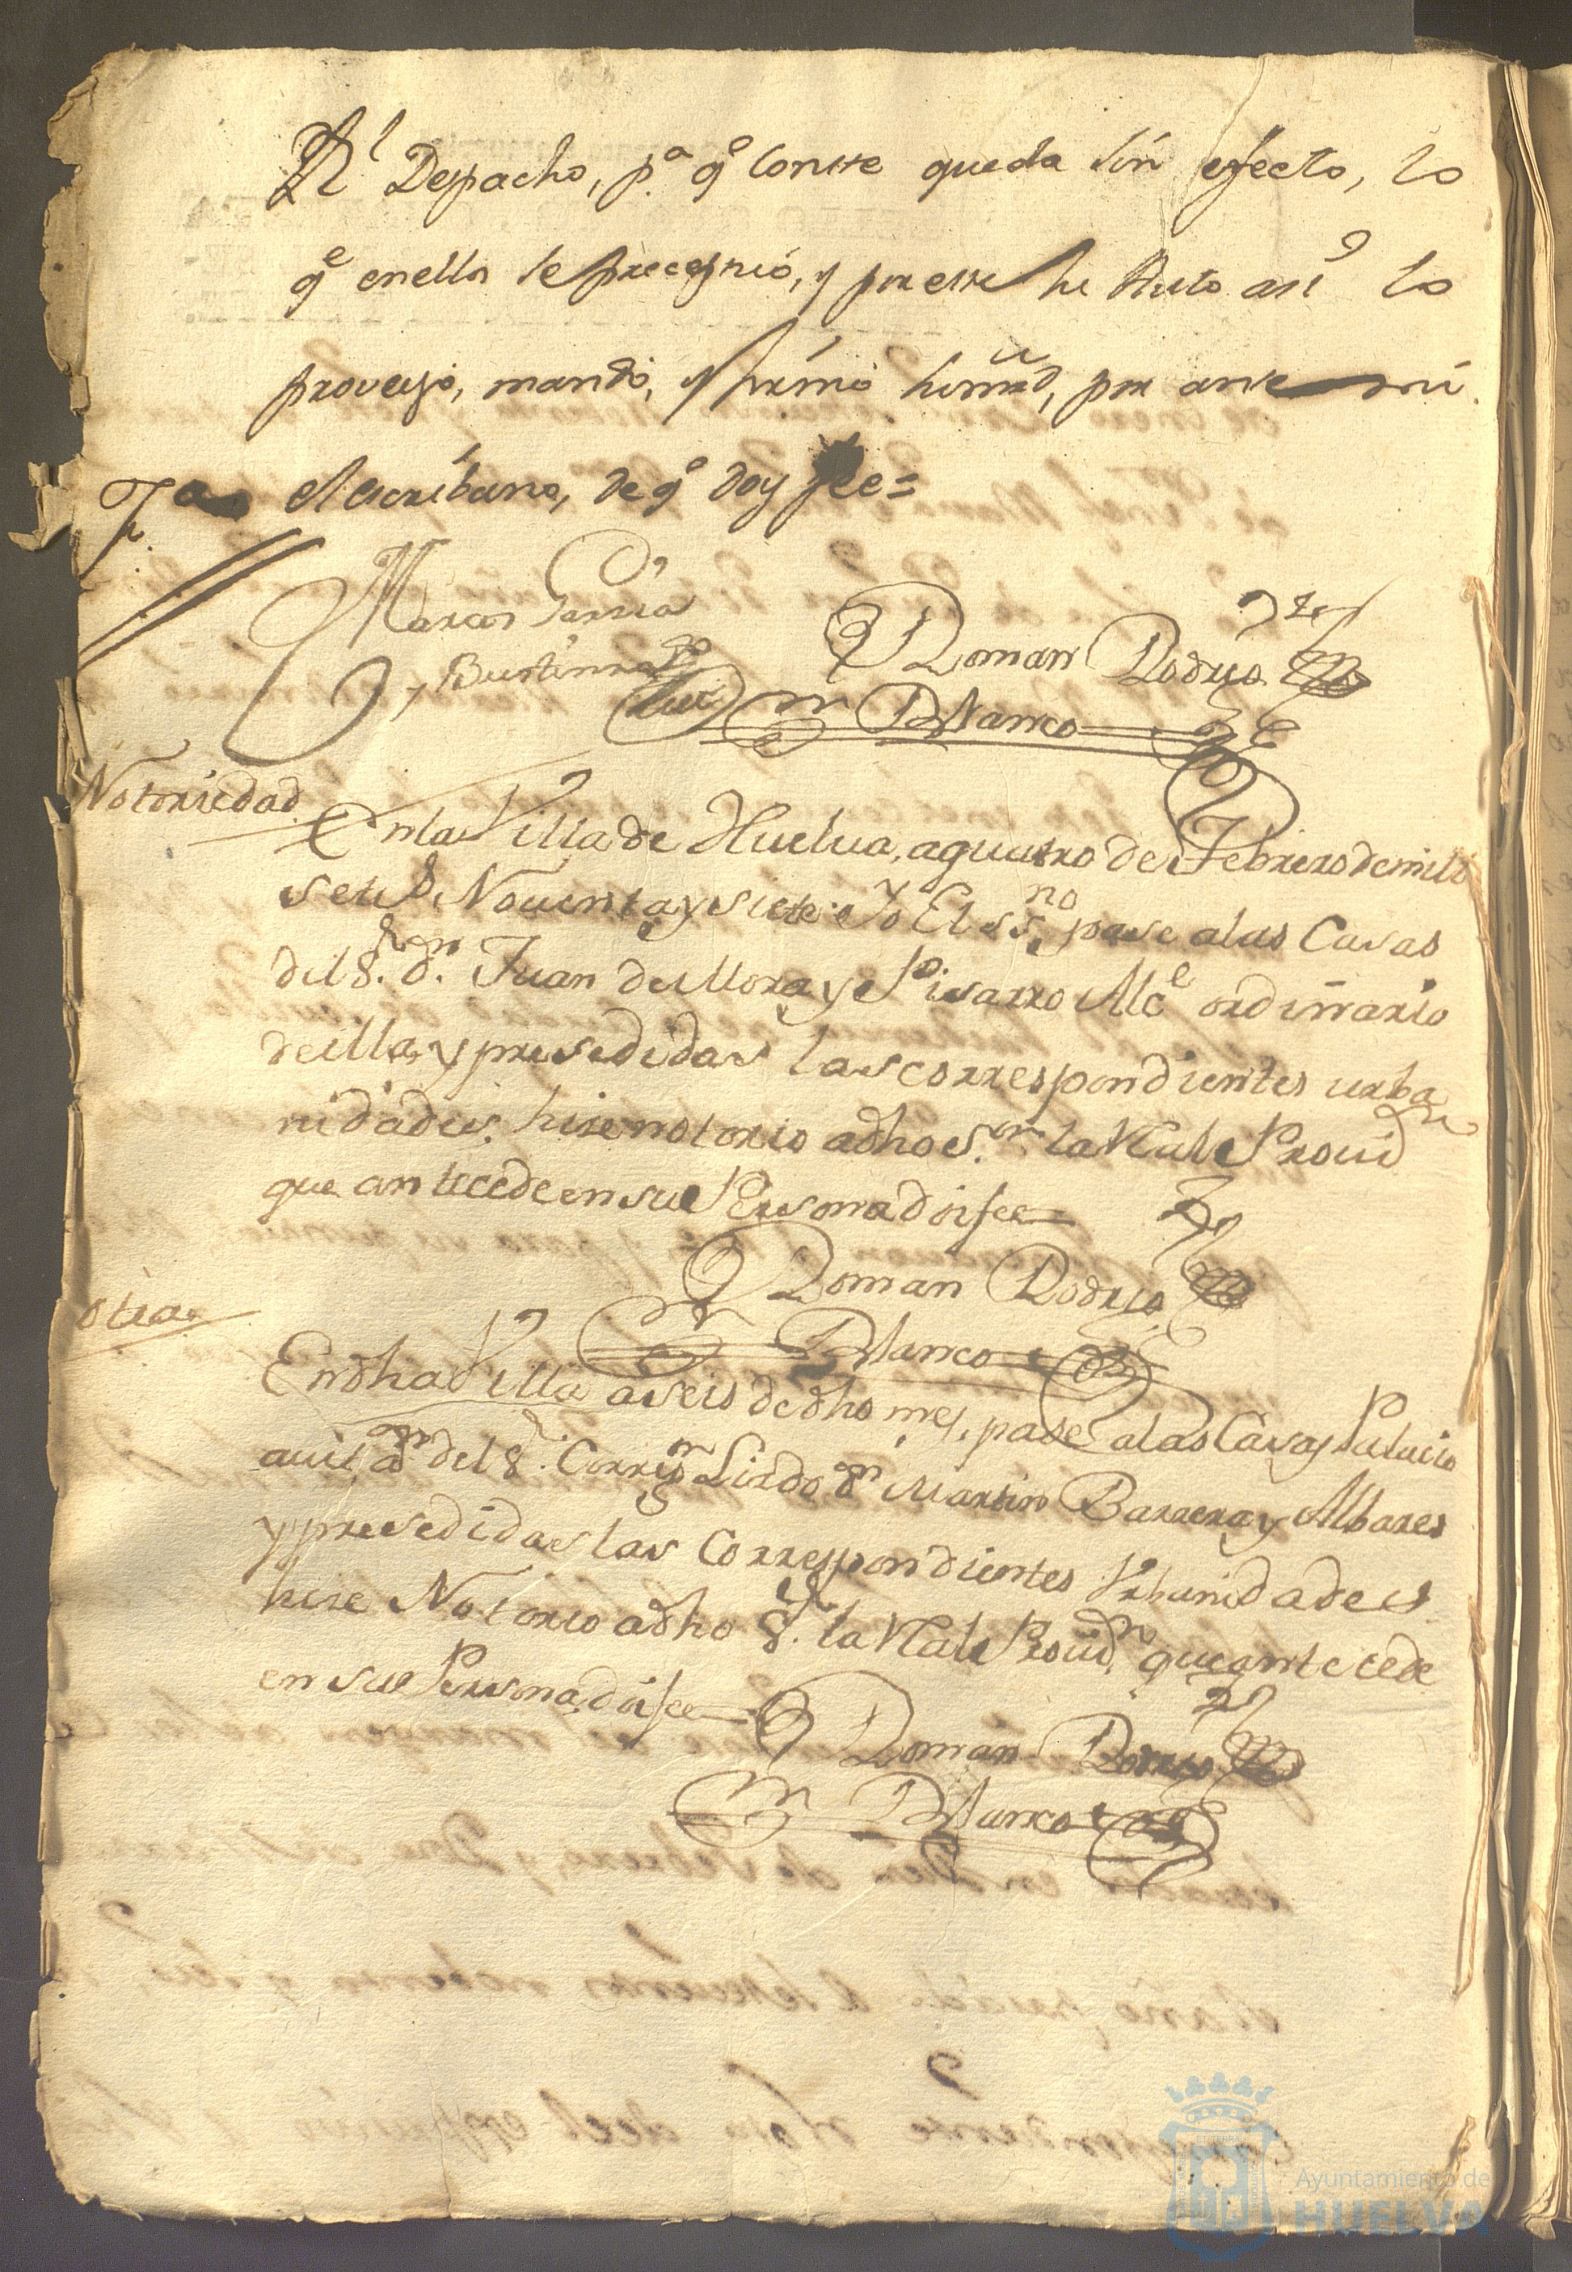 Rl Despacho, pa. qe conste queda sin efecto, lo
qe enella se precepruó, y por este su Auto así lo
proveyó, mandó, y firmó su md, por ante mí
el escribano, de qe doy fee=
Marcos Garsia
y Bustam.te
Roman Rodrig.z
Blanco
Notoriedad
En la Villa de Huelua, a quatro de Febrero de mill
setes. Nouenta y siete: Yo El ss.no pase a las Casas
del S.r d.n Juan de Mora y Pisarro Alc.e ordinnario
de ella, y presedidas las correspondientes urba
nidades, hise notorio a dho S.or la Real Prouid.a
que antecede en su Persona doi fee=
Roman Rodrig.z
Blanco
otra
En dha Villa a seis de dho mes, pase a las Casas Palacio
auit.on del S.r Corre.or Lizdo d.n Martin Barrera y Albares
y presedidas las Correspondientes Vrbanidades
hise Notorio a dho S.r la Real Prouid.a que antecede
en su Persona, doi fee=
Roman Rodrig.z
Blanco
Ayuntamiento de
HUELVA